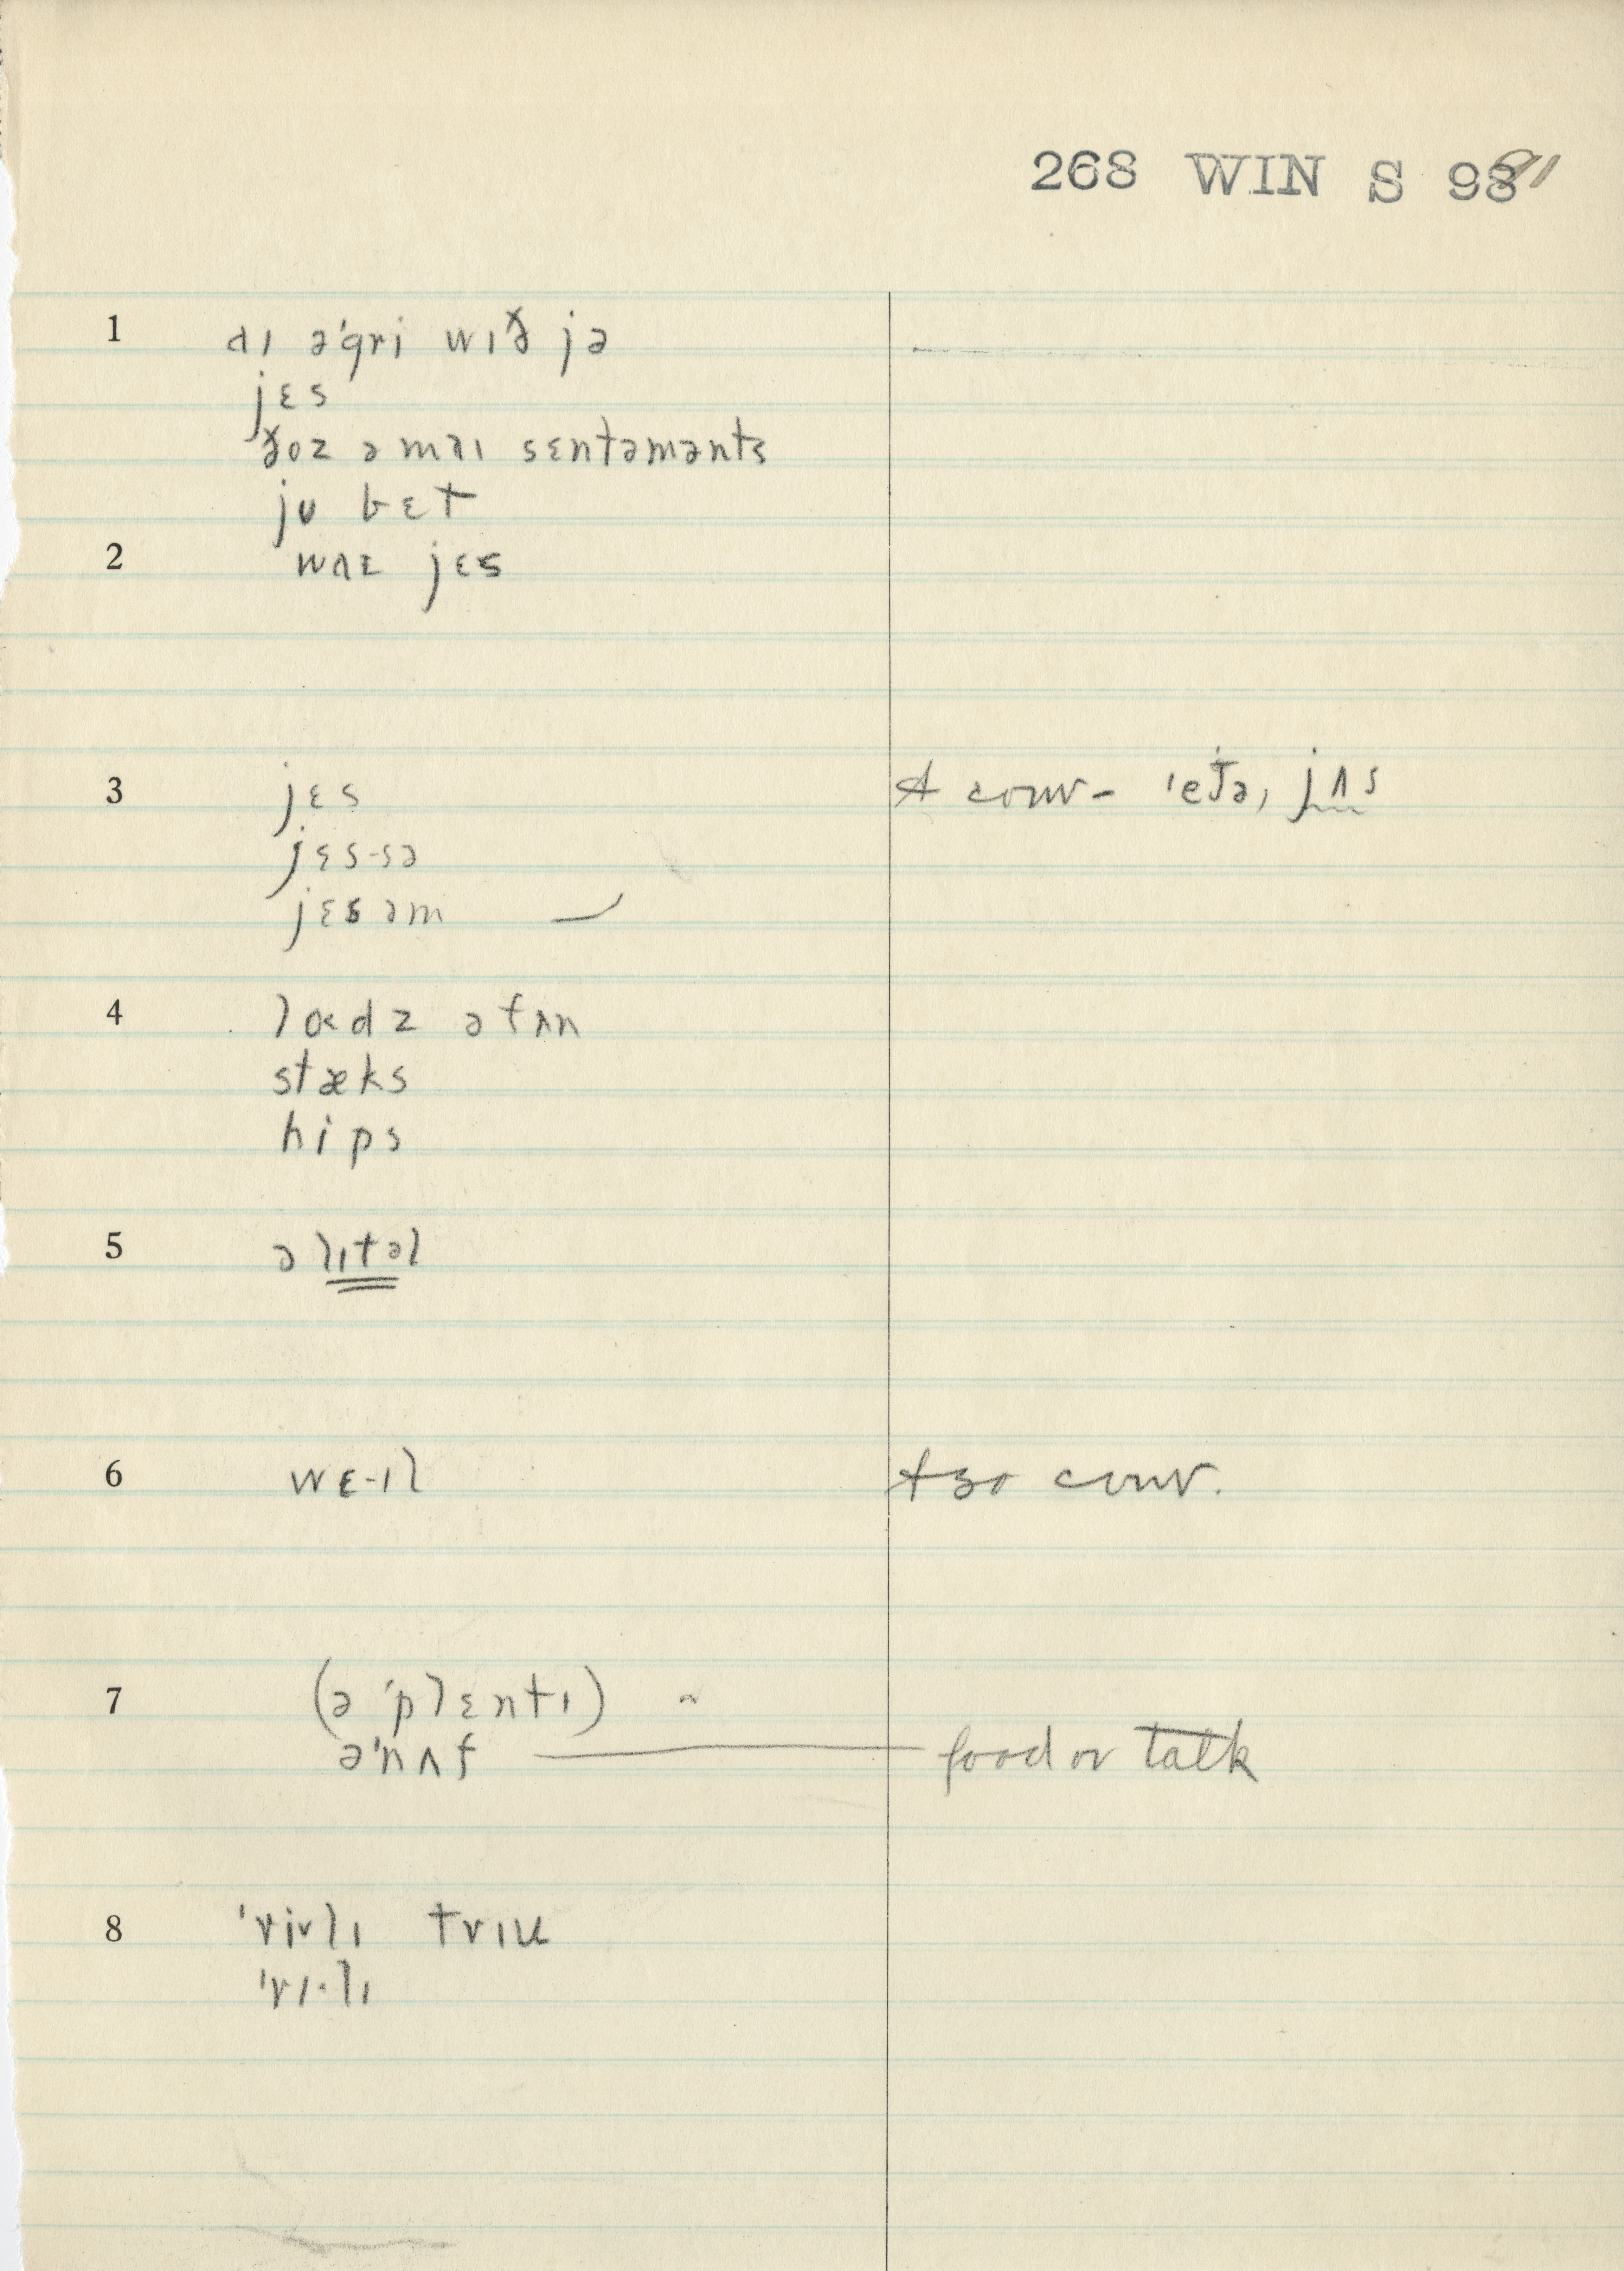 268 WIN S 98 91
1 aɪ əˈgri wɪð jə
jɛs
ðoz ə maɪ sɛntəmənts
ju bɛt
2 waɛ jɛs
3 jɛs 4 conv- ˈet̬ə, jʌs
jɛs-sə
jɛsəm
4 lodz ətʌn
stæks
hips
5 ə lɪtəl
6 wɛ-ɪl conv.
7 (əˈplɛntɪ)
əˈnʌf food or talk
8 ˈrivlɪ trɪk
ˈrɪ·lɪ